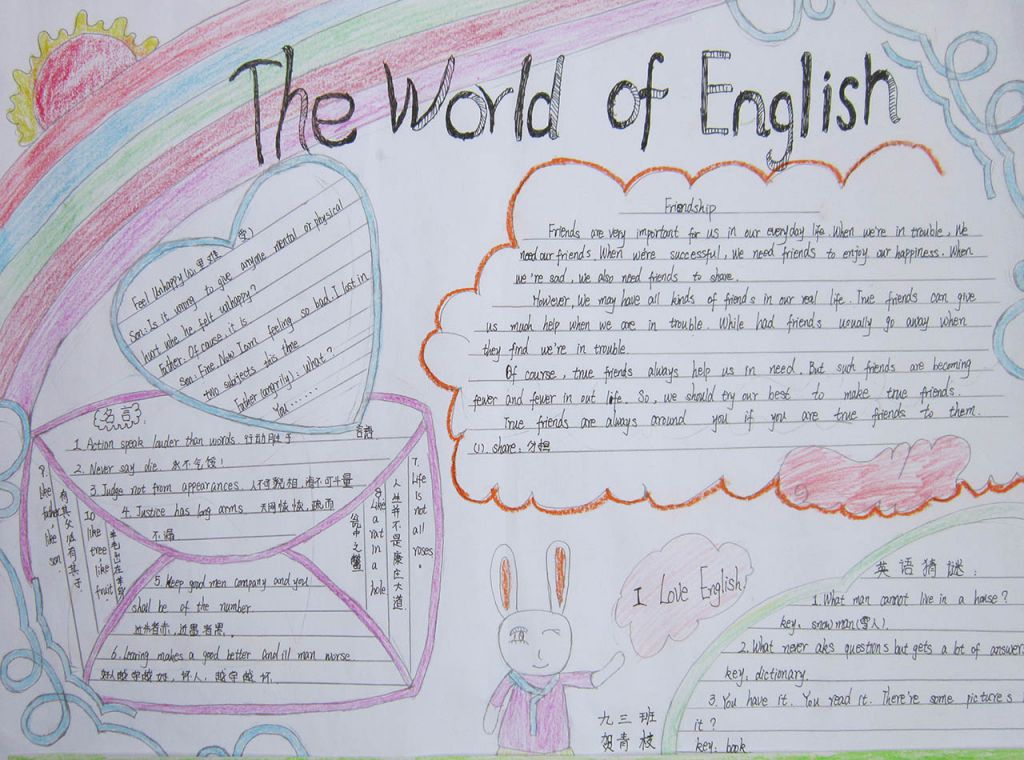 The World of English
Feel Unhappy
Son: Is it wrong to give anyone mental or physical
hurt whe he felt unhappy?
Father: Of cause, it is
Son: Fine. Now I am feeling so bad. I lost in
two subjects this three
Father (angrily): What?
You ......
Friendship
Friends are very important for us in our everyday life. When we're in trouble, We
need our friends. When we're successful, we need friends to enjoy our happiness. When
we're sad, we also need friends to share.
However, we may have all kinds of friends in our real life. True friends can give
us much help when we are in trouble. While had friends usually go away when
they find we're in trouble.
Of course, true friends always help us in need. But such friends are becoming
fewer and fewer in out life. So, we should try our best to make true friends.
True friends are always around you if you are true friends to them.
(1). share: 分担
名言:
1. Action speak louder than words 行动胜于言语.
2. Never say die. 永不气馁!
3. Judge not from appearances. 人不可貌相,海不可斗量
4. Justice has long arms 天网恢恢,疏而
不漏
5. keep good men company and you
shall be of the number.
近朱者赤,近墨者黑.
6. Learing makes a good better and ill man worse.
好人越学越好,坏人,越学越坏.
7. Life is not all roses.
人生并不是康庄大道
8. Like a rat in a hole
瓮中之鳖
9. like father, like son
有其父必有其子.
10 like tree like fruit
羊毛出在羊身
I Love English!
九三班
贺青枝
英语猜谜:
1. What man cannot live in a house?
key: snowman(雪人)
2. What never aks questions but gets a lot of answer
key: dictionary
3. You have it. You read it. There're some pictures
it?
key: book